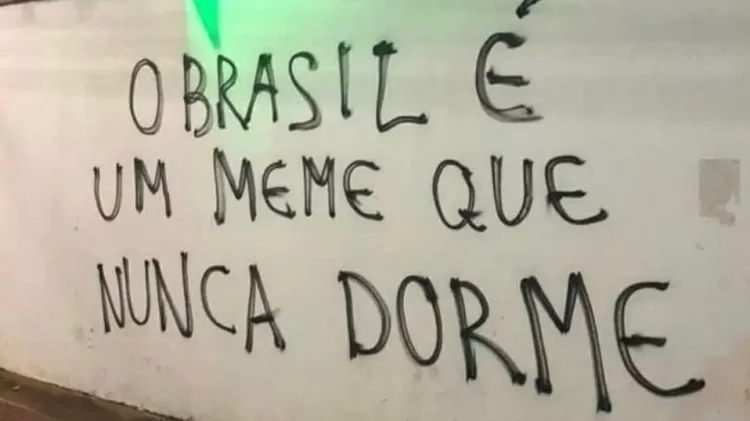 O BRASIL É
UM MEME QUE
NUNCA DORME